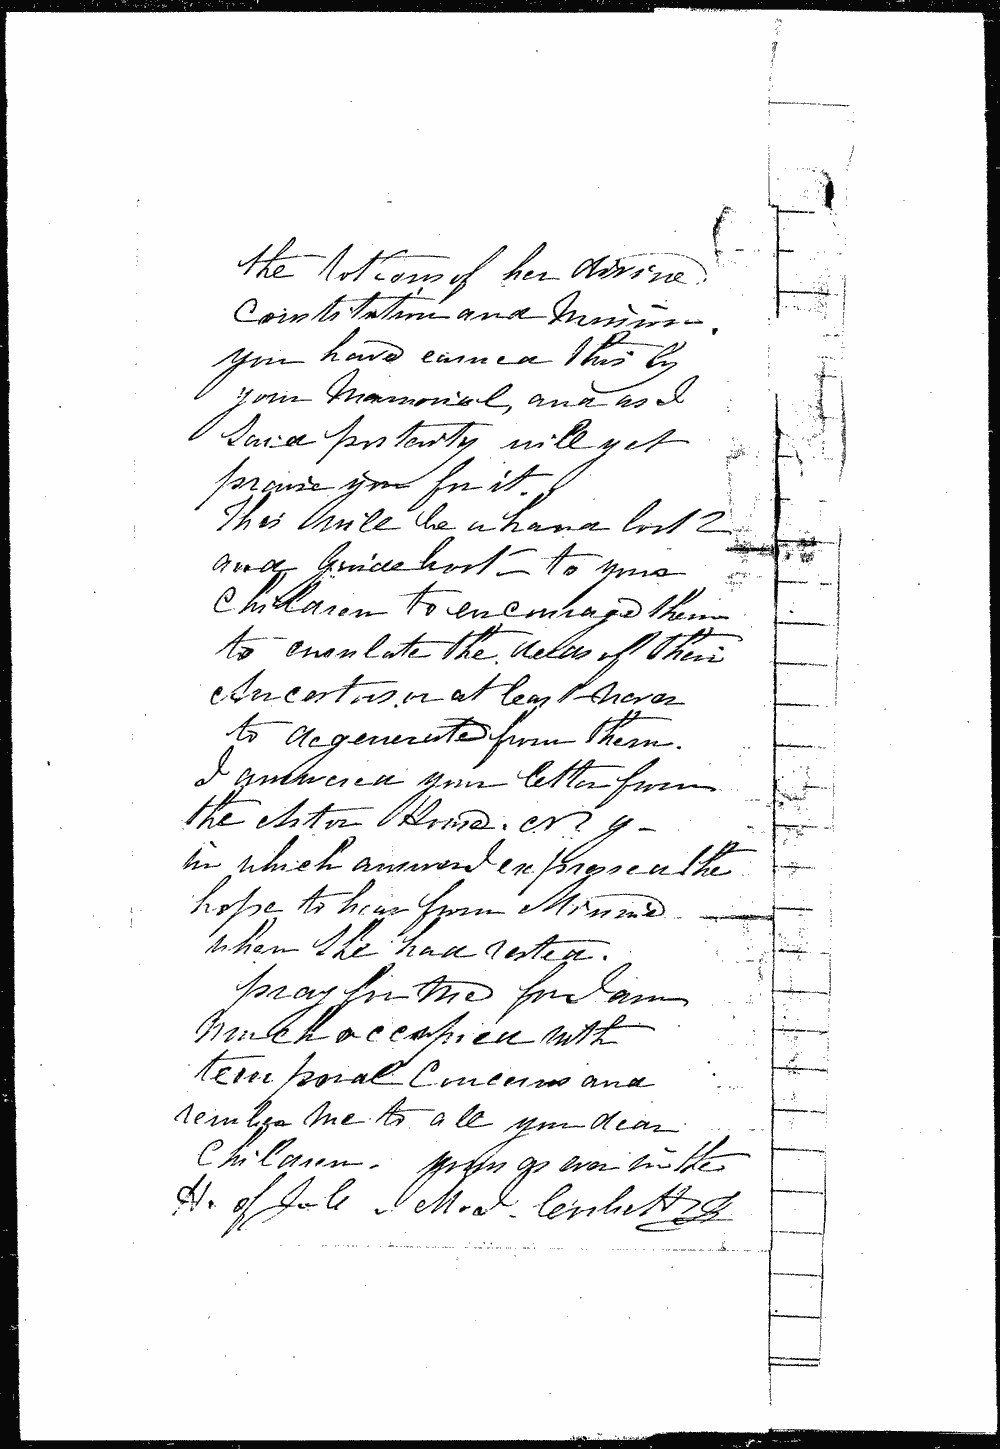 the notions of her divine
Constitution and Mission.
you have earned this by
your Memorial, and as I
said posterity will yet
praise you for it.
This will be a hand
and guide to your
Children to encourage them
to emulate the deeds of their
Ancestors, or at least never
to degenerate from them.
I answered your letter from
the Astor House. N Y -
in which answer I expressed the
hope to hear from Minnie
when she had rested.
pray for me for I am
much occupied with
temporal Concerns and
me to all your dear
Children. yours as ever in the
H. of